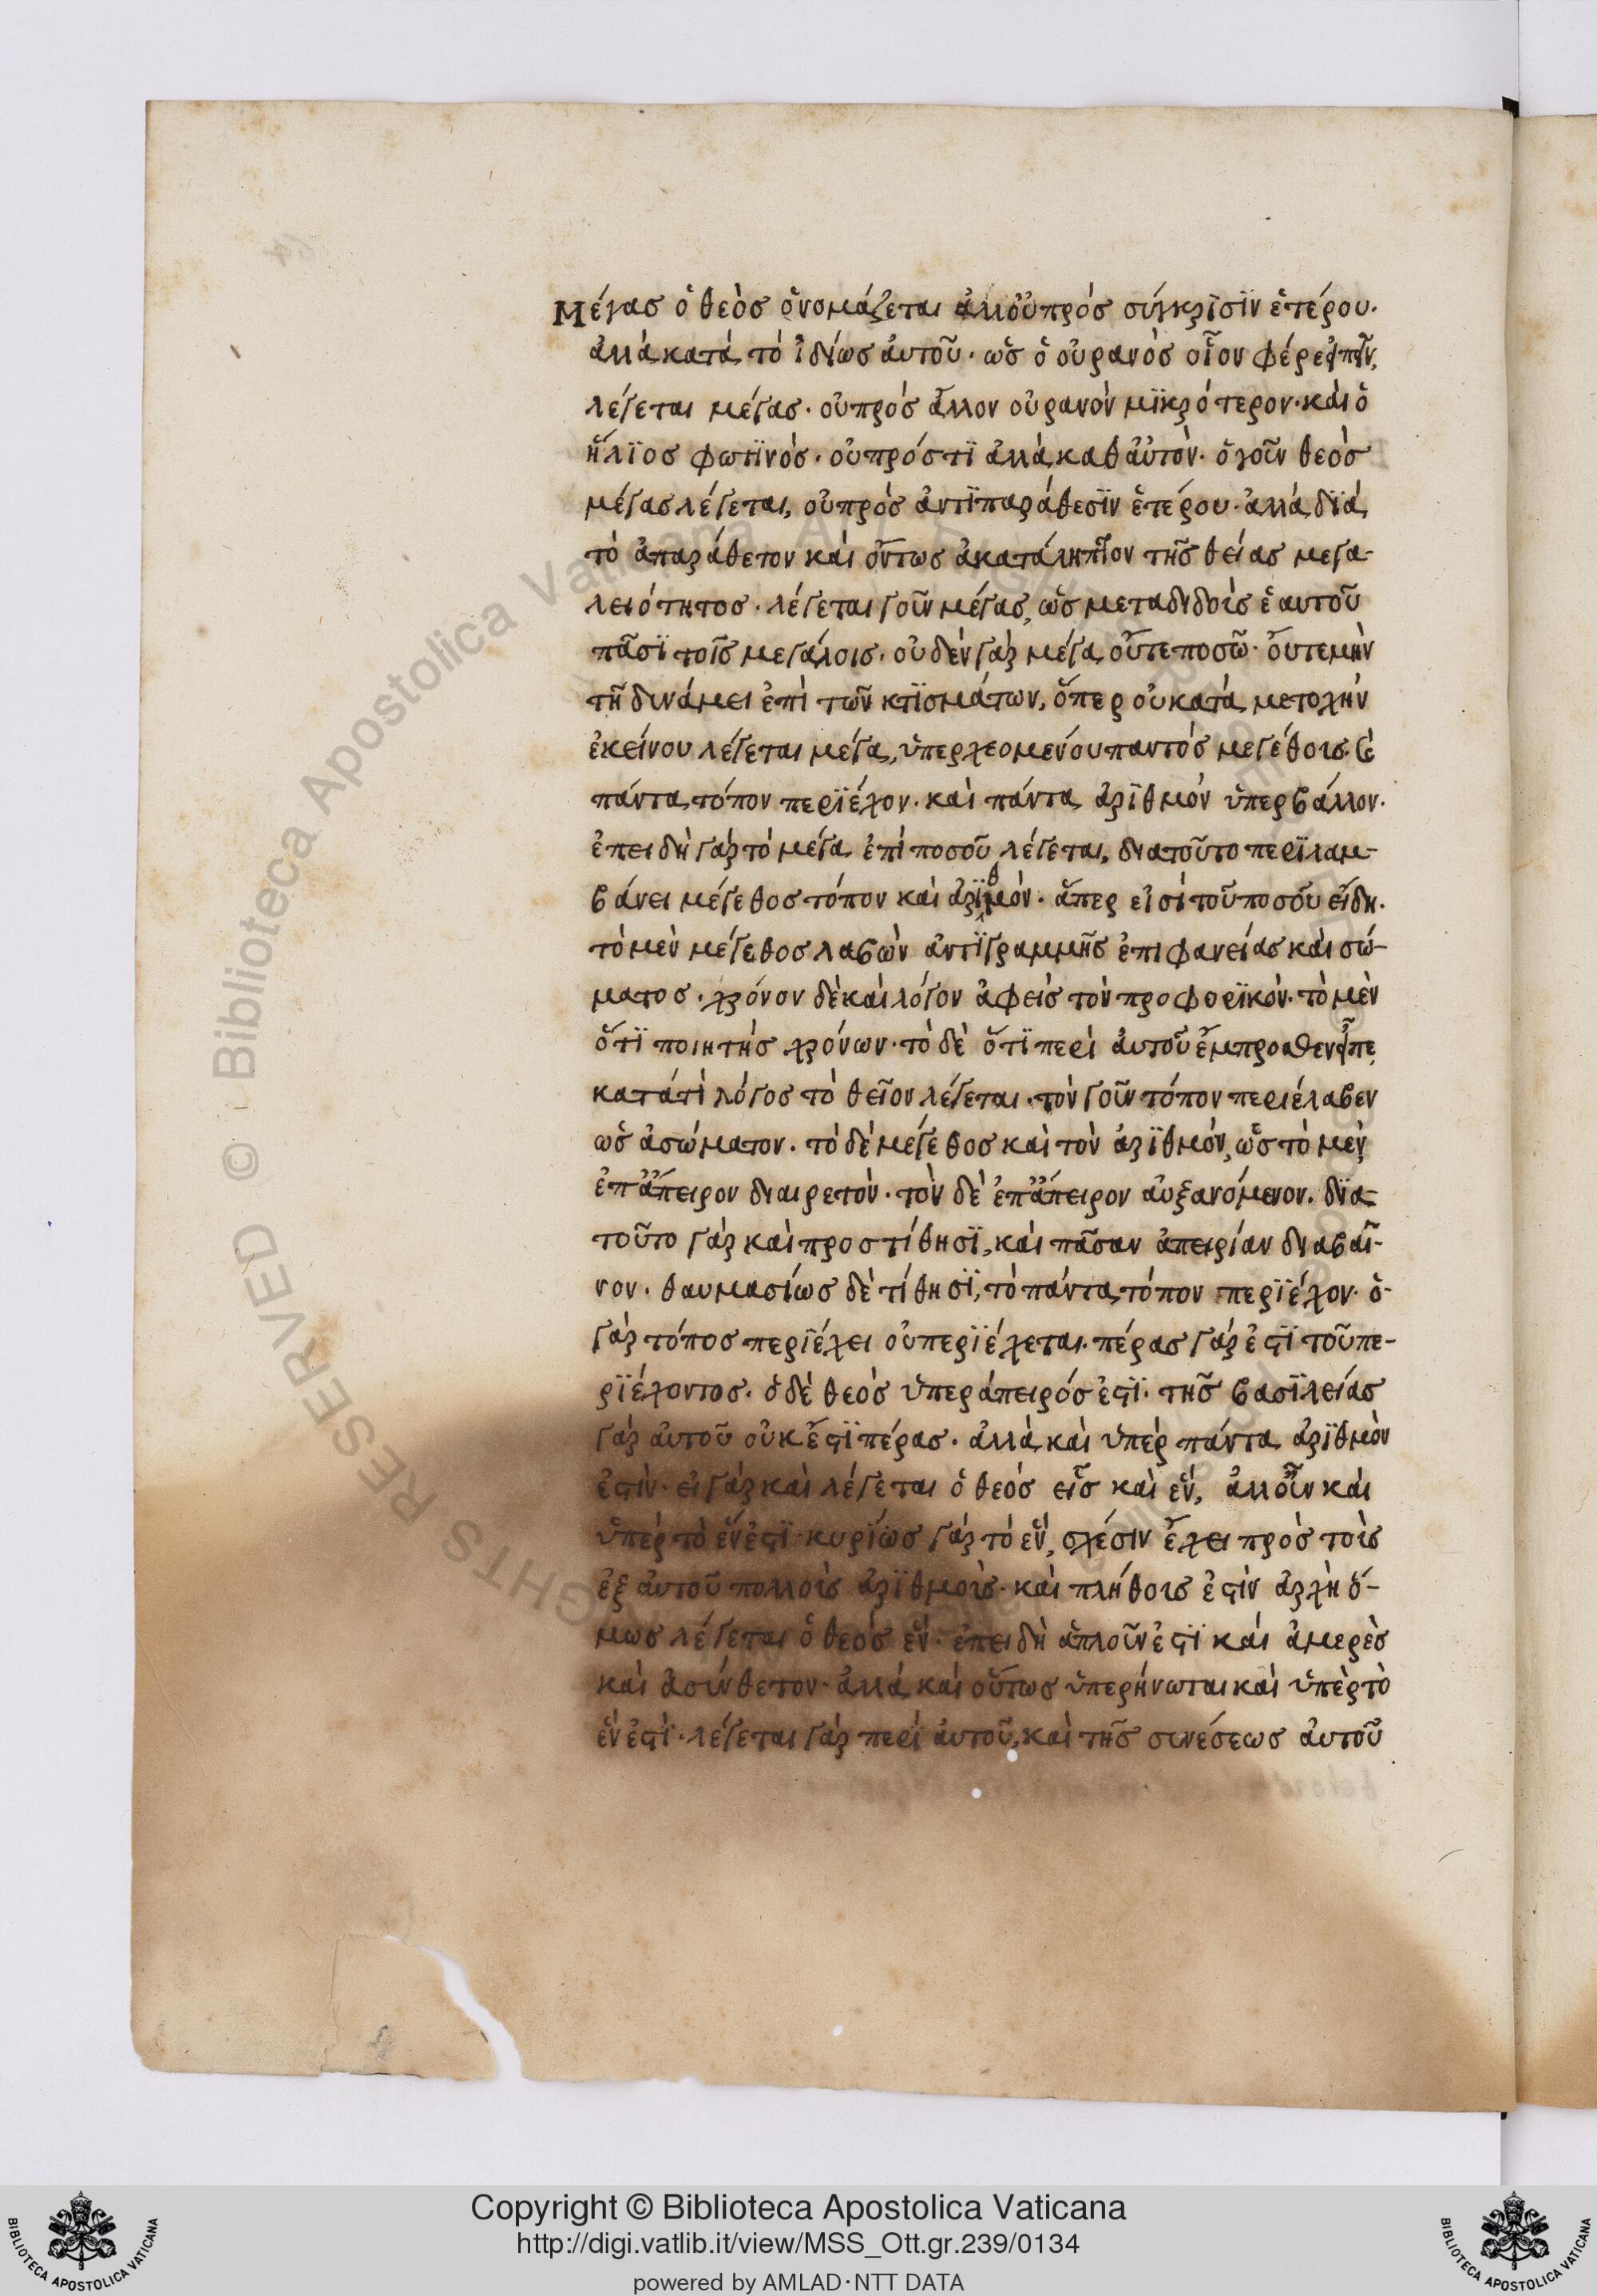 Μέγας ὁ θεὸς ὀνομάζεται ἀλλ' οὐ πρὸς σύγκρϊσϊν ἑτέρου.
ἀλλὰ κατὰ τὸ ἰδίως αὐτοῦ. ὡς ὁ οὐρανὸς οἷον φέρε εἰπεῖν,
λέγεται μέγας. οὐ πρὸς ἄλλον οὐρανὸν μϊκρότερον. καὶ ὁ
ἥλϊος φωτϊνός. οὐ πρός τϊ ἀλλὰ καθ' αὑτόν. ὁ γοῦν θεὸς
μέγας λέγεται, οὐ πρὸς ἀντϊπαράθεσϊν ἑτέρου. ἀλλὰ δϊὰ
τὸ ἀπαράθετον καὶ ὄντως ἀκατάληπτον τῆς θείας μεγα-
λειότητος. λέγεται γοῦν μέγας, ὡς μεταδιδοὺς ἑαυτοῦ
πᾶσϊ τοῖς μεγάλοις. οὐδὲν γὰρ μέγα οὔτε ποσῶ. οὔτε μὴν
τῆ δυνάμει ἐπὶ τῶν κτϊσμάτων, ὅπερ οὐ κατὰ μετοχὴν
ἐκείνου λέγεται μέγα, ὑπερχεομένου παντὸς μεγέθους. καὶ
πάντα τόπον περϊέχον. καὶ πάντα ἀρϊθμὸν ὑπερβάλλον.
ἐπειδὴ γὰρ τὸ μέγα ἐπὶ ποσοῦ λέγεται, διατοῦτο περϊλαμ-
βάνει μέγεθος τόπον καὶ ἀρϊθμόν. ἅπερ εἰσὶ τοῦ ποσοῦ εἴδη.
τὸ μὲν μέγεθος λαβὼν ἀντϊ γραμμῆς ἐπιφανείας καὶ σώ-
ματος. χρόνον δὲ καὶ λόγον ἀφεὶς τὸν προφορϊκόν. τὸ μὲν
ὅτϊ ποιητὴς χρόνων. τὸ δὲ ὅτϊ περὶ αὐτοῦ ἔμπροσθεν εἶπε
κατὰ τί λόγος τὸ θεῖον λέγεται. τὸν γοῦν τόπον περιέλαβεν
ὡς ἀσώματον. τὸ δὲ μέγεθος καὶ τὸν ἀρϊθμὸν, ὡς τὸ μὲν
ἐπ' ἄπειρον διαιρετόν. τὸν δὲ ἐπ' ἄπειρον αὐξανόμενον. δϊα-
τοῦτο γὰρ καὶ προστίθησϊ, καὶ πᾶσαν ἀπειρίαν διαβαῖ-
νον. θαυμασίως δὲ τίθησϊ, τὸ πάντα τόπον περϊέχον. ὁ-
γὰρ τόπος περϊέχει οὐ περϊέχεται. πέρας γὰρ ἐστϊ τοῦ πε-
ρϊέχοντος. ὁ δὲ θεὸς ὑπεράπειρός ἐστϊ. τῆς βασϊλείας
γὰρ αὐτοῦ οὐκ ἔστϊ πέρας. ἀλλὰ καὶ ὑπὲρ πάντα ἀρϊθμὸν
ἐστὶν. εἰ γὰρ καὶ λέγεται ὁ θεὸς εἷς καὶ ἕν, ἀλλ' οὖν καὶ
ὑπὲρ τὸ ἕν ἐστϊ. κυρίως γὰρ τὸ ἕν, σχέσιν ἔχει πρὸς τοὺς
ἐξ αὐτοῦ πολλοὺς ἀρϊθμούς. καὶ πλήθους ἐστὶν ἀρχὴ ὅ-
μως λέγεται ὁ θεὸς ἕν. ἐπειδὴ ἁπλοῦν ἐστϊ καὶ ἀμερὲς
καὶ ἀσύνθετον. ἀλλὰ καὶ οὕτως ὑπερήνωται καὶ ὑπὲρ τὸ
ἕν ἐστὶ. λέγεται γὰρ περὶ αὐτοῦ, καὶ τῆς συνέσεως αὐτοῦ
Copyright © Biblioteca Apostolica Vaticana
http://digi.vatlib.it/view/MSS_Ott.gr.239/0134
powered by AMLAD·NTT DATA